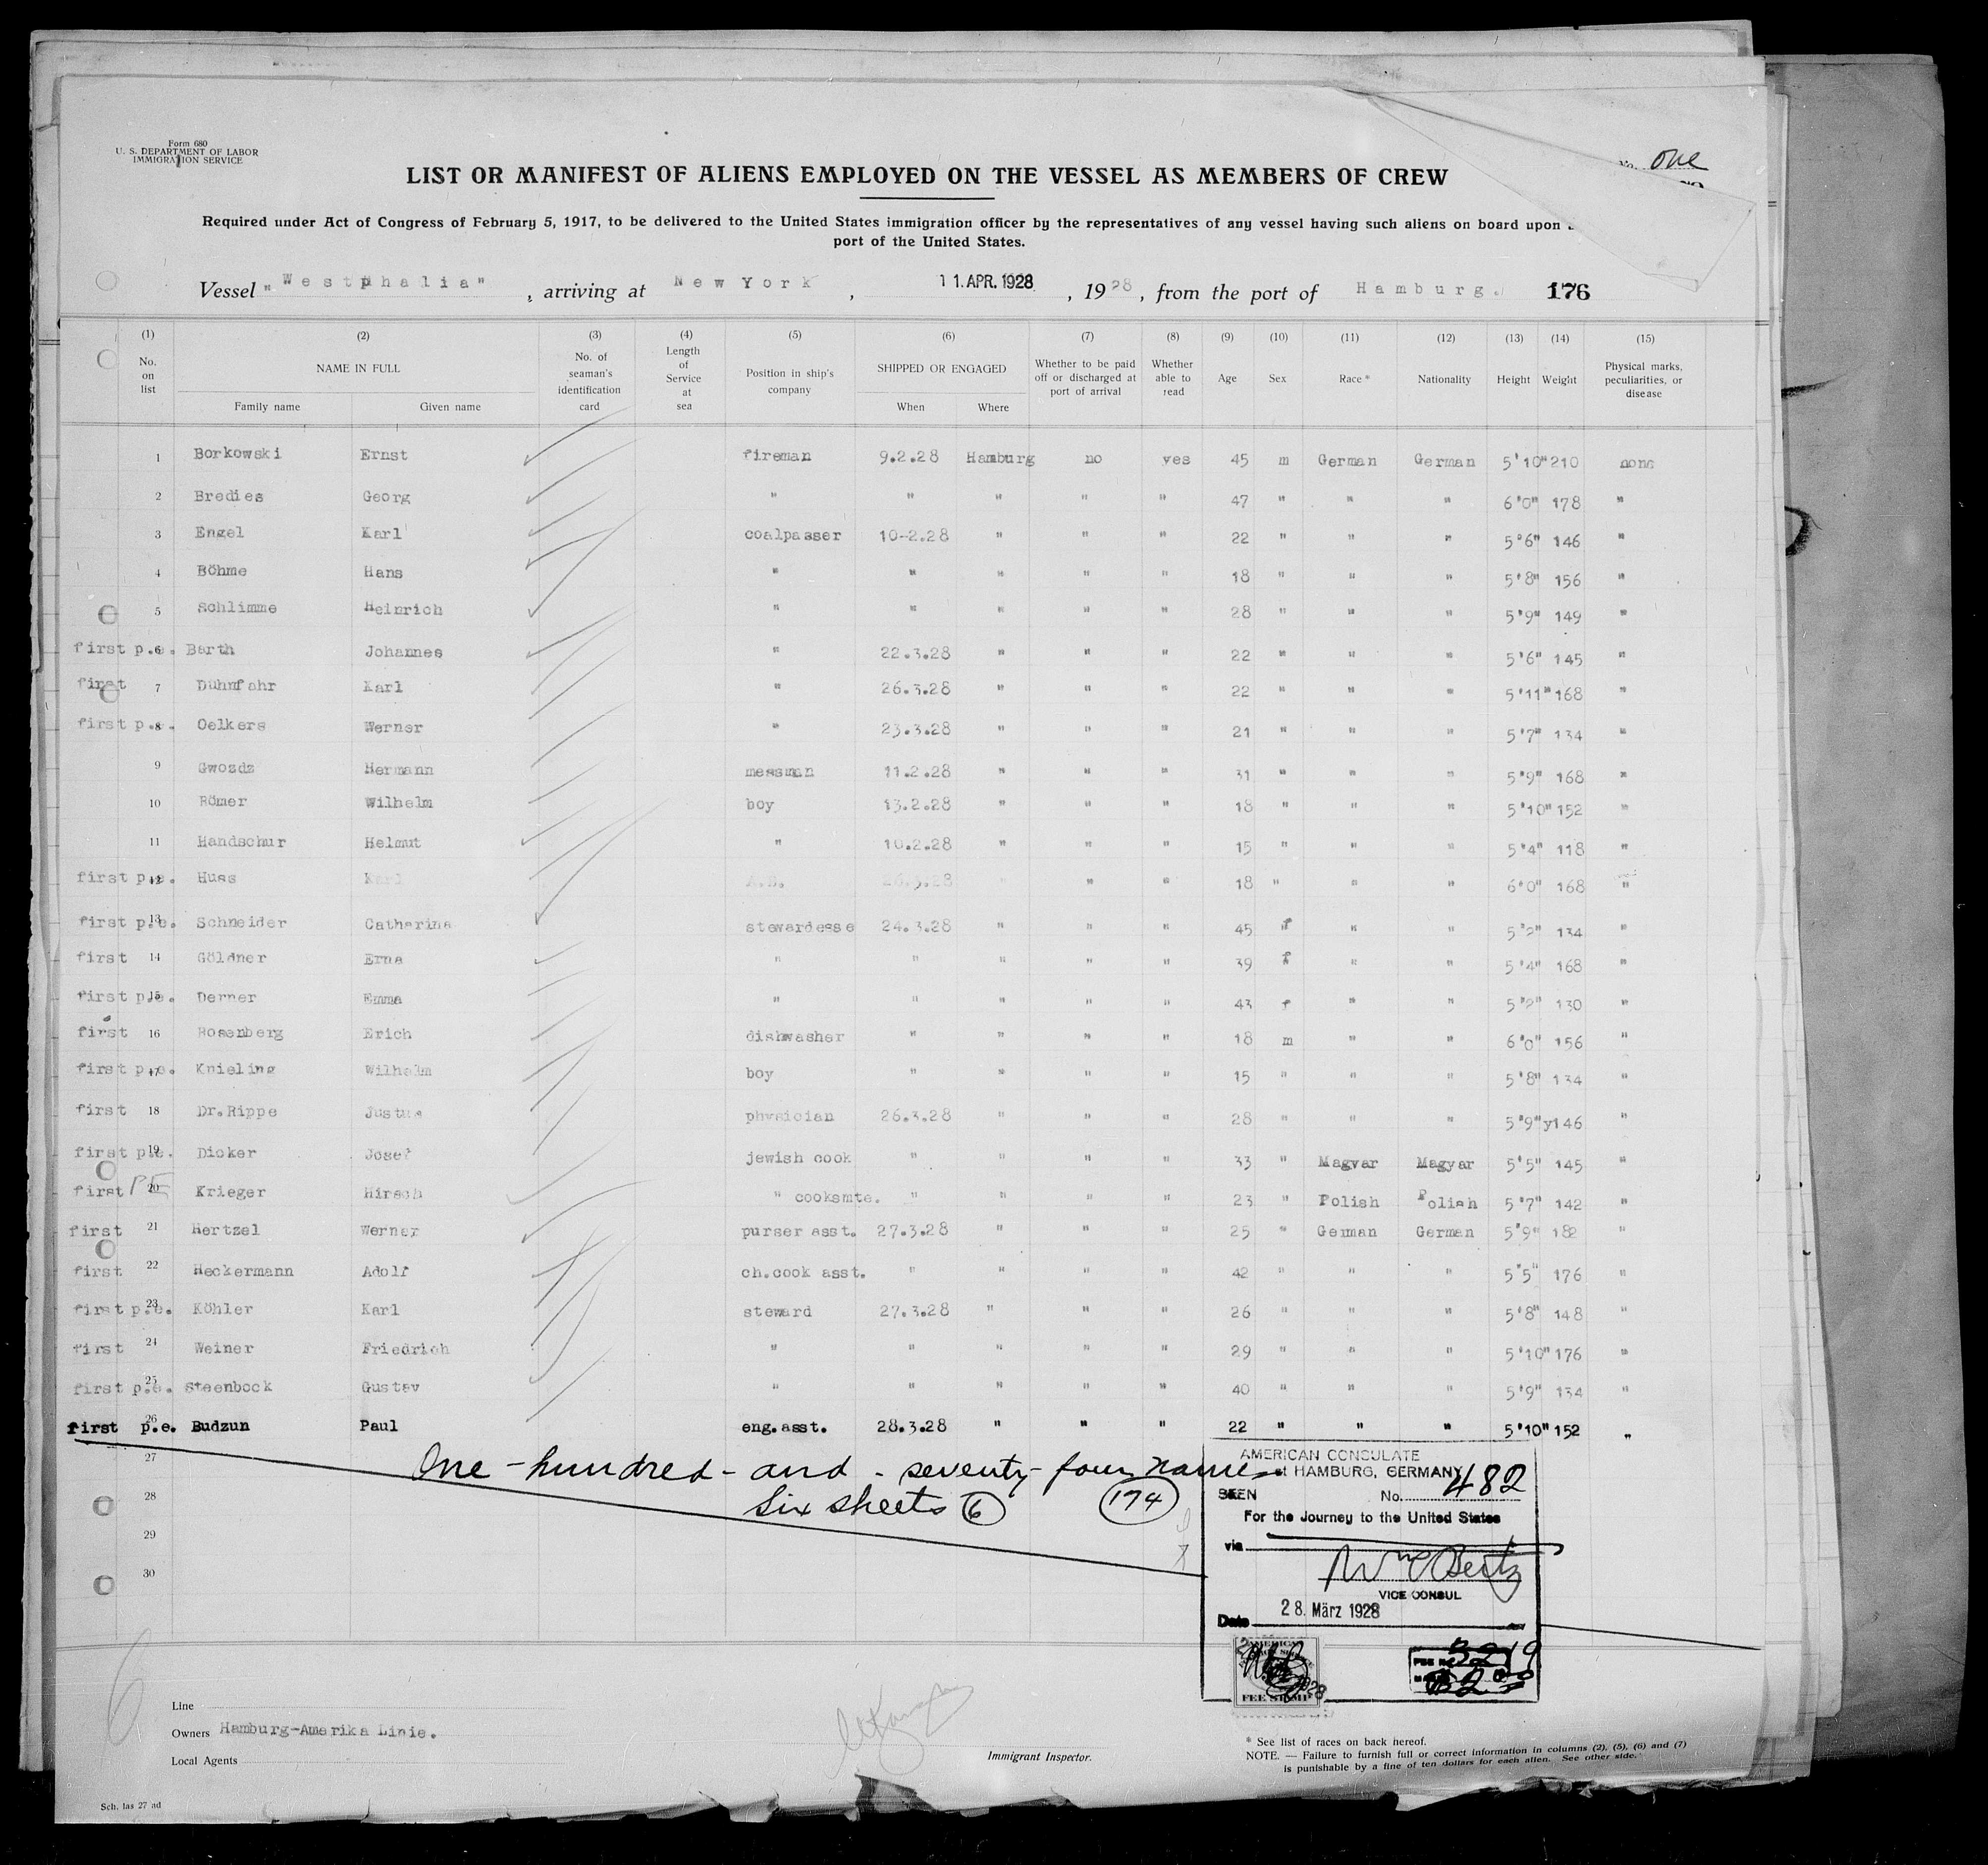 Form 680
U. S. DEPARTMENT OF LABOR
IMMIGRATION SERVICE
No. one
LIST OR MANIFEST OF ALIENS EMPLOYED ON THE VESSEL AS MEMBERS OF CREW
Required under Act of Congress of February 5, 1917, to be delivered to the United States immigration officer by the representatives of any vessel having such aliens on board upon
port of the United States.
Vessel "Westphalia", arriving at New York, 11. APR. 1928, 1928, from the port of Hamburg. 176
(1) (2) (3) (4) (5) (6) (7) (8) (9) (10) (11) (12) (13) (14) (15)
No. on list NAME IN FULL Family name Given name No. of seaman's identification card Length of Service at sea Position in ship's company SHIPPED OR ENGAGED When Where Whether to be paid off or discharged at port of arrival Whether able to read Age Sex Race * Nationality Height Weight Physical marks, peculiarities, or disease
1 Borkowski Ernst fireman 9.2.28 Hamburg no yes 45 m German German 5'10" 210 none
2 Bredies Georg " " " " " 47 " " " 6'0" 178 "
3 Engel Karl coalpasser 10-2.28 " " " 22 " " " 5'6" 146 "
4 Böhme Hans " " " " " 18 " " " 5'8" 156 "
5 Schlimme Heinrich " " " " " 28 " " " 5'9" 149 "
first p.e. 6 Barth Johannes " 22.3.28 " " " 22 " " " 5'6" 145 "
first 7 Dühnfahr Karl " 26.3.28 " " " 22 " " " 5'11" 168 "
first p.e. 8 Oelkers Werner " 23.3.28 " " " 21 " " " 5'7" 134 "
9 Gwozdz Hermann messman 11.2.28 " " " 31 " " " 5'9" 168 "
10 Römer Wilhelm boy 13.2.28 " " " 18 " " " 5'10" 152 "
11 Handschur Helmut " 10.2.28 " " " 15 " " " 5'4" 118 "
first p.e. 12 Huss Karl A.B. 26.3.28 " " " 18 " " " 6'0" 168 "
first p.e. 13 Schneider Catharina stewardesse 24.3.28 " " " 45 f " " 5'2" 134 "
first 14 Göldner Erna " " " " " 39 f " " 5'4" 168 "
first p.e. 15 Derner Emma " " " " " 43 f " " 5'2" 130 "
first 16 Rosenberg Erich dishwasher " " " " 18 m " " 6'0" 156 "
first p.e. 17 Knieling Wilhelm boy " " " " 15 " " " 5'8" 134 "
first 18 Dr. Rippe Justus physician 26.3.28 " " " 28 " " " 5'9" y146 "
first p.e. 19 Dicker Josef jewish cook " " " " 33 " Magyar Magyar 5'5" 145 "
first PE 20 Krieger Hirsch " cooksmte. " " " " 23 " Polish Polish 5'7" 142 "
first 21 Hertzel Werner purser asst. 27.3.28 " " " 25 " German German 5'9" 182 "
first 22 Heckermann Adolf ch.cook asst. " " " " 42 " " " 5'5" 176 "
first p.e. 23 Köhler Karl steward 27.3.28 " " " 26 " " " 5'8" 148 "
first 24 Weiner Friedrich " " " " " 29 " " " 5'10" 176 "
first p.e. 25 Steenbock Gustav " " " " " 40 " " " 5'9" 134 "
first p.e. 26 Budzun Paul eng.asst. 28.3.28 " " " 22 " " " 5'10" 152 "
27
One-hundred-and-seventy-four names
28
Six sheets (6) (174)
29
30
AMERICAN CONSULATE
at HAMBURG, GERMANY
SEEN No. 482
For the Journey to the United States
via
VICE CONSUL
Date 28. März 1928
FEE STAMP
Line
Owners Hamburg-Amerika Linie.
Local Agents
Immigrant Inspector.
6
* See list of races on back hereof.
NOTE. — Failure to furnish full or correct information in columns (2), (5), (6) and (7)
is punishable by a fine of ten dollars for each alien. See other side.
Sch. las 27 ad